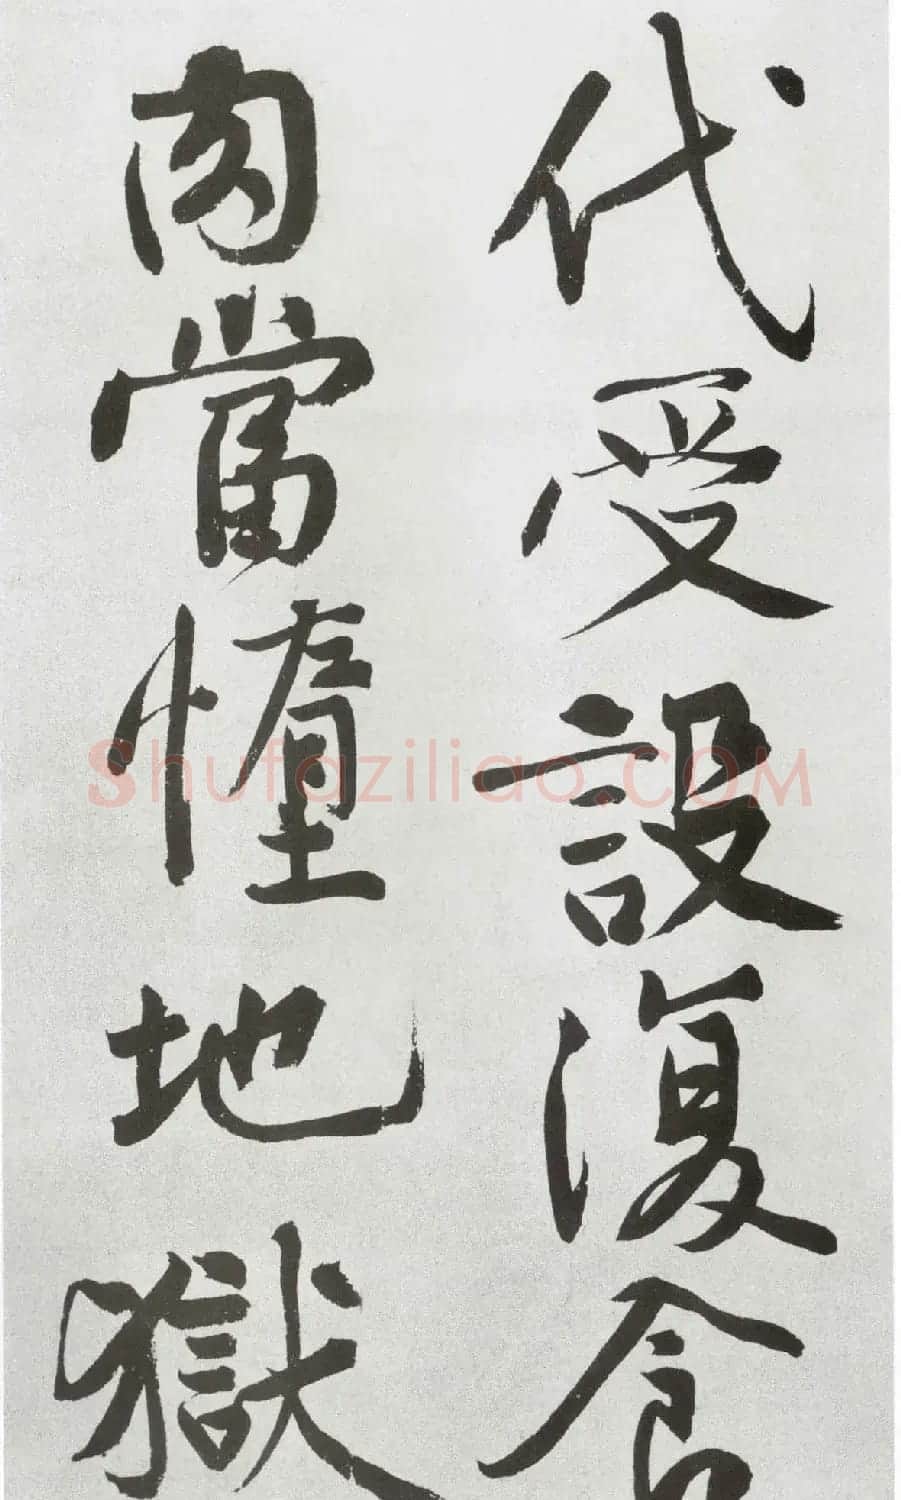 代受設復食
肉當憻地獄
Shufaziliao.COM